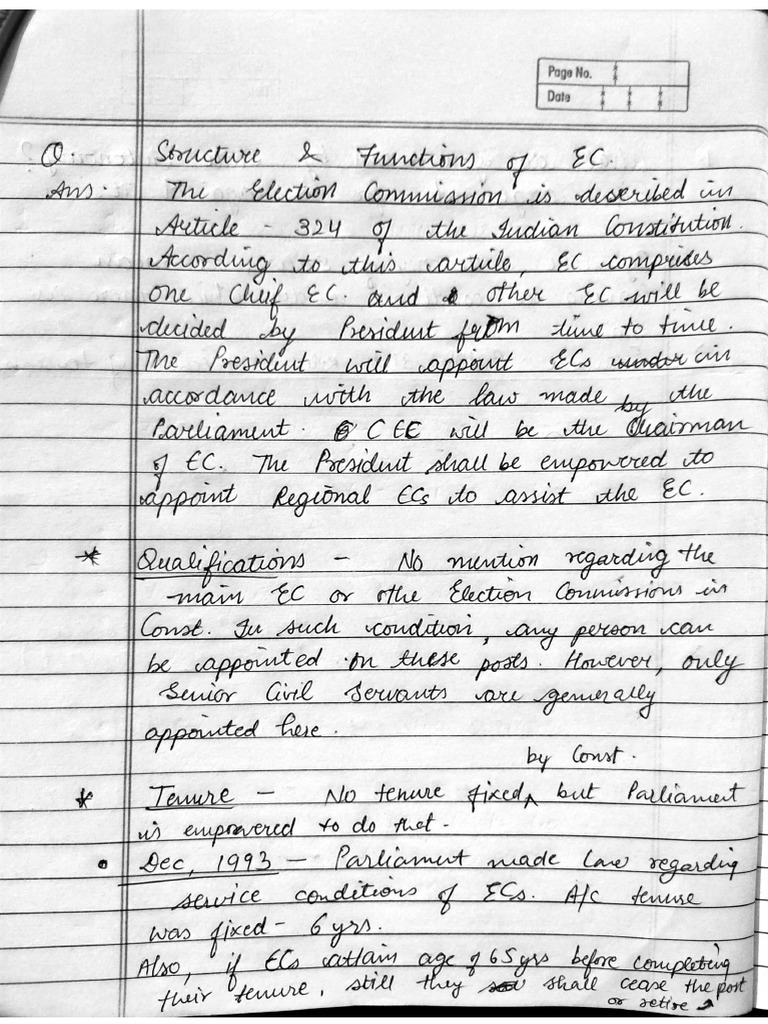 Page No.
Date
Q. Structure & Functions of EC.
Ans. The Election Commission is described in
Article - 324 of the Indian Constitution.
According to this article, EC comprises
one Chief EC. and other EC will be
decided by President from time to time.
The President will appoint ECs in
accordance with the law made by the
Parliament. CEC will be the Chairman
of EC. The President shall be empowered to
appoint Regional ECs to assist the EC.
* Qualifications - No mention regarding the
main EC or othe Election Commissions in
Const. In such condition, any person can
be appointed on these posts. However, only
Senior Civil Servants are generally
appointed here.
by Const.
* Tenure - No tenure fixed^ but Parliament
is empowered to do that.
• Dec, 1993 - Parliament made law regarding
service conditions of ECs. A/c tenure
was fixed - 6 yrs.
Also, if ECs attain age of 65 yrs before completing
their tenure, still they shall cease the post
or retire